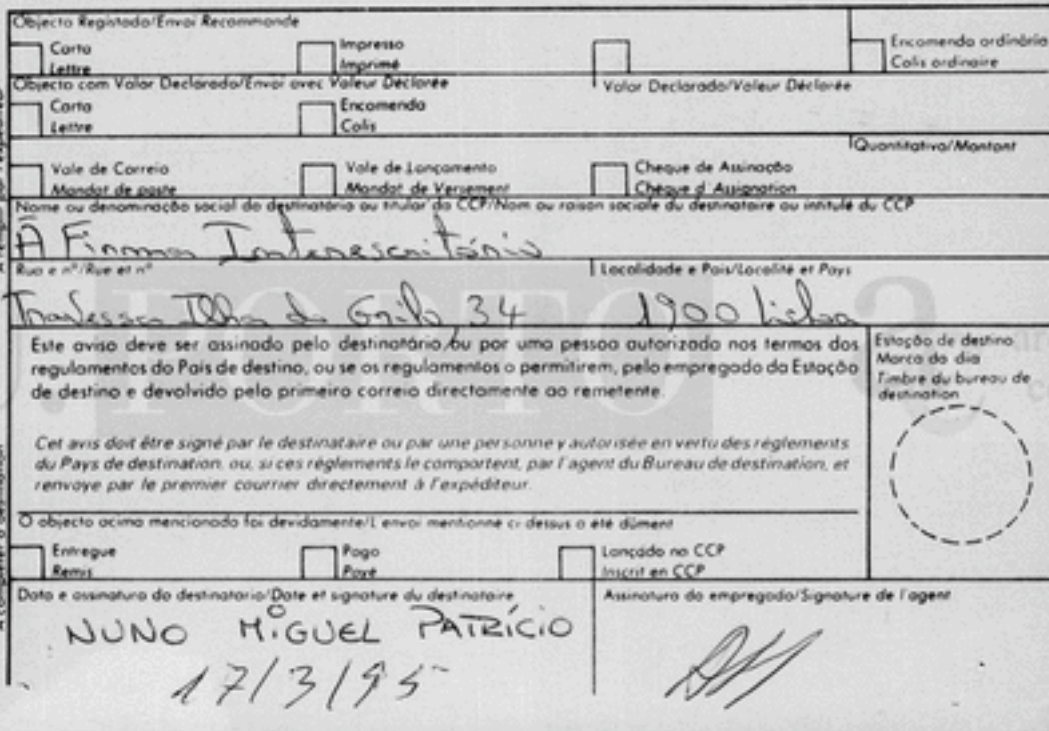 Objecto Registado/Envoi Recommande
Carta
Lettre
Impresso
Imprimé
Encomenda ordinária
Colis ordinaire
Objecto com Valor Declarado/Envoi avec Valeur Déclarée
Valor Declarado/Valeur Déclarée
Carta
Lettre
Encomenda
Colis
Quantitativo/Montant
Vale de Correio
Mandat de poste
Vale de Lançamento
Mandat de Versement
Cheque de Assinação
Chèque d'Assignation
Nome ou denominação social do destinatário ou titular da CCP/Nom ou raison sociale du destinataire ou intitulé du CCP
À Firma Interescritório
Rua e nº/Rue et nº
Localidade e País/Localité et Pays
Travessa Ilha do Grilo, 34 1900 Lisboa
PORTO
Este aviso deve ser assinado pelo destinatário ou por uma pessoa autorizada nos termos dos
regulamentos do País de destino, ou se os regulamentos o permitirem, pelo empregado da Estação
de destino e devolvido pelo primeiro correio directamente ao remetente.
Cet avis doit être signé par le destinataire ou par une personne y autorisée en vertu des règlements
du Pays de destination, ou, si ces règlements le comportent, par l'agent du Bureau de destination, et
renvoye par le premier courrier directement à l'expéditeur.
Estação de destino
Marca do dia
Timbre du bureau de
destination
O objecto acima mencionado foi devidamente/L envoi mentionne ci dessus a été dûment
Entregue
Remis
Pago
Payé
Lançado na CCP
Inscrit en CCP
Data e assinatura do destinatario/Date et signature du destinataire
Assinatura do empregado/Signature de l'agent
NUNO MIGUEL PATRÍCIO
17/3/95